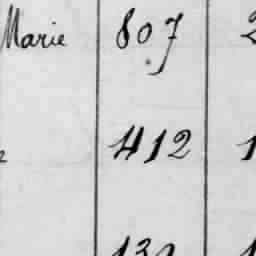 Marie 807 2
412 1